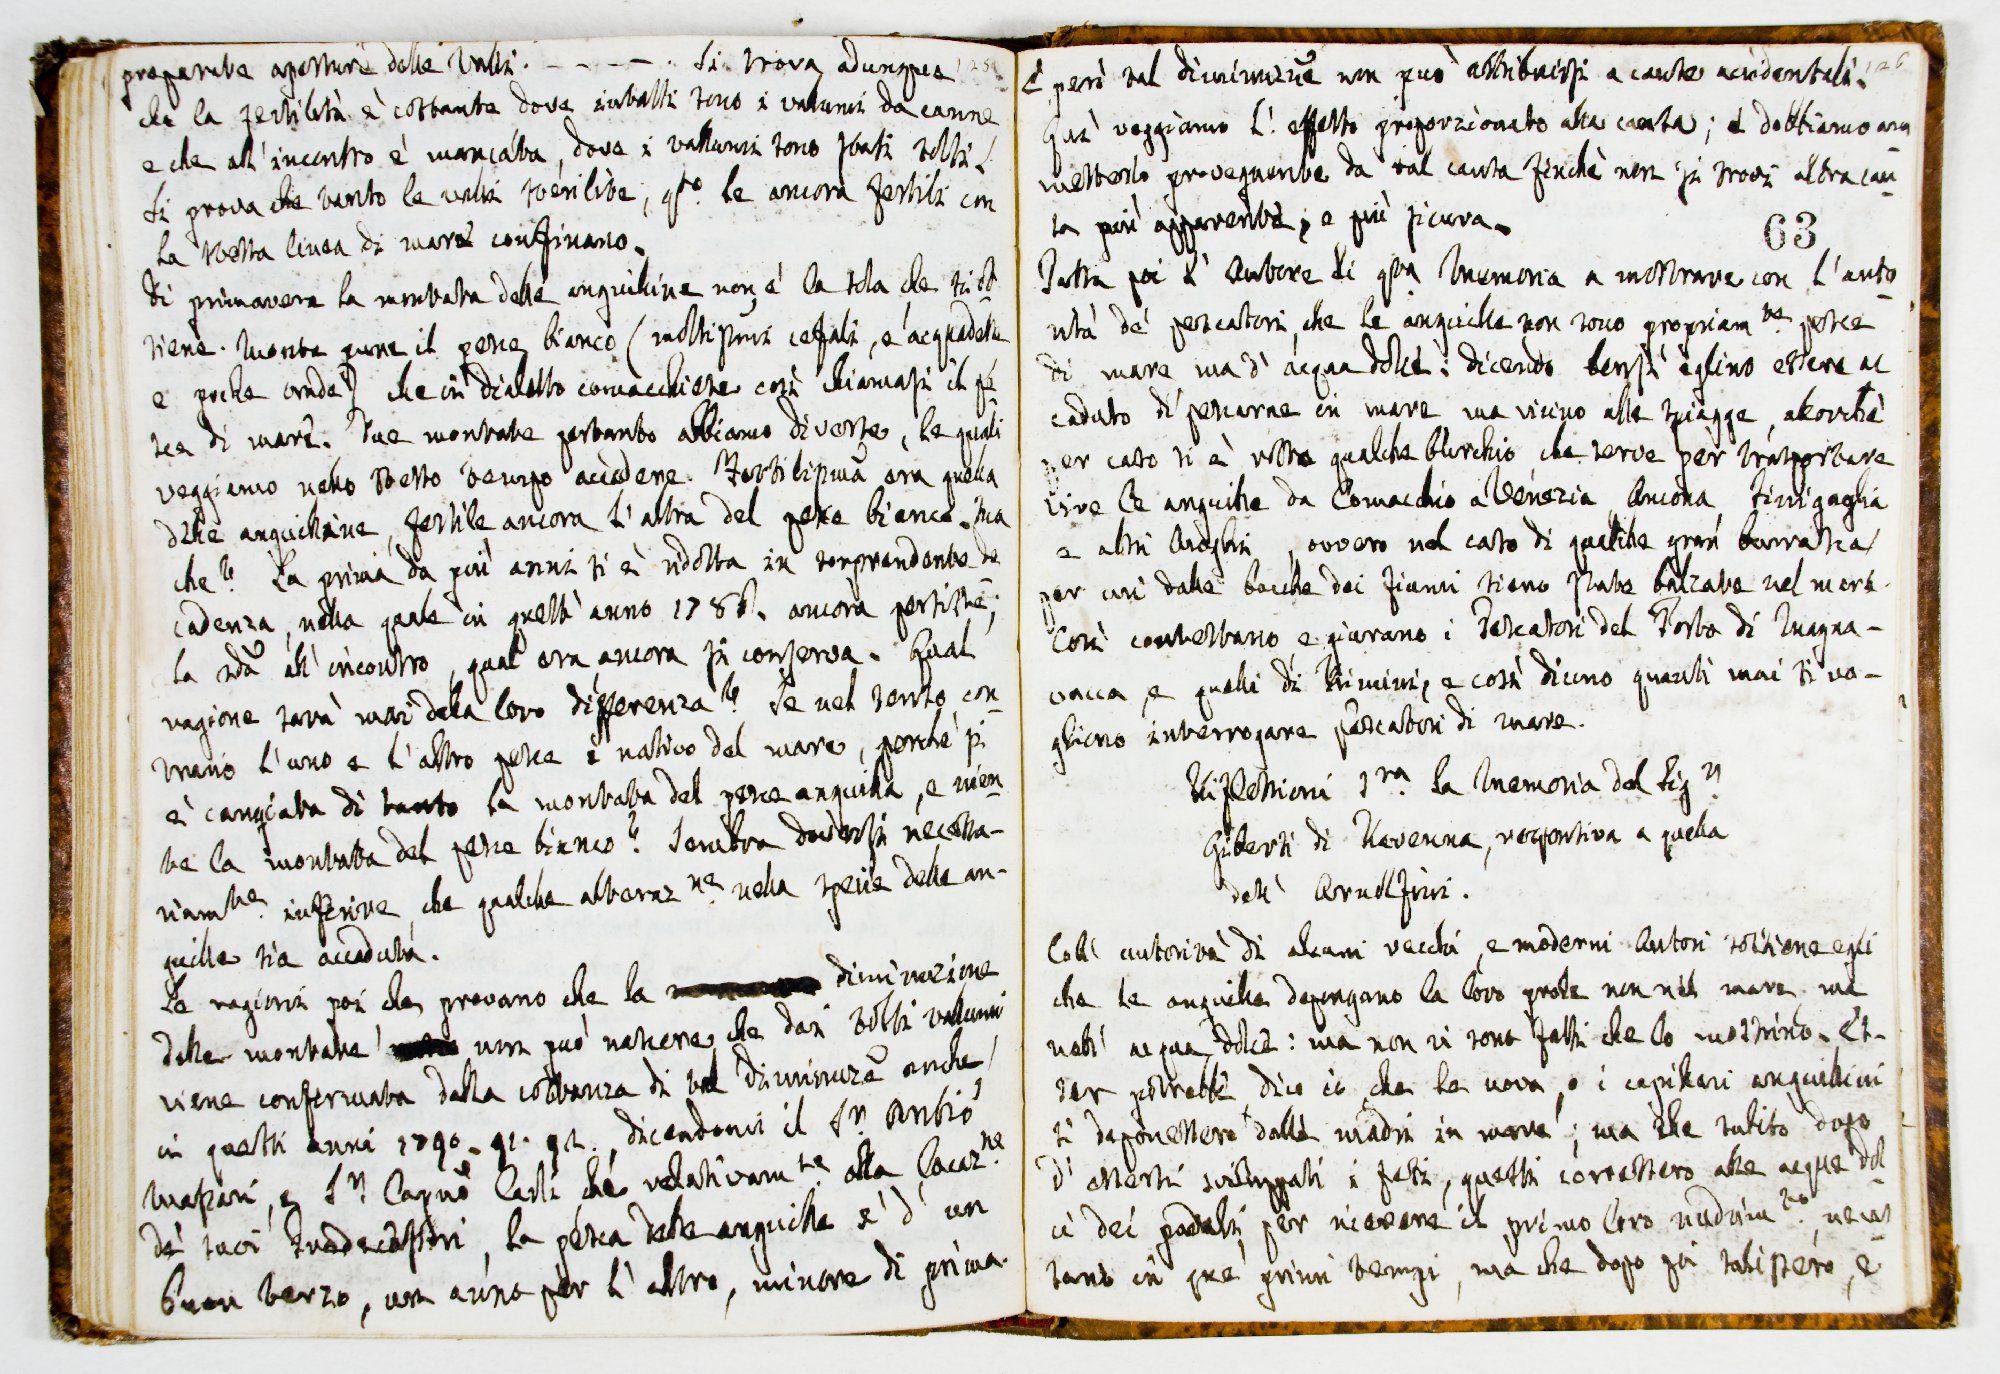 preparate aperture delle Valli. - - - - . Si trova adunque
che la fertilità è costante dove intatti sono i vallumi da canne
e che all' incontro è mancata, dove i vallumi sono stati tolti.
Si prova che tanto le valli sterilite, q.to le ancora fertili con
la stessa linea di mare confinano.
Di primavera la montata delle anguilline non è la sola che si ot-
tiene. Monta pure il pesce bianco (moltissimi cefali, e acquadelle
e poche orade) che in dialetto comacchiese così chiamasi il pe-
sce di mare. Due montate pertanto abbiamo diverse, le quali
veggiamo nello stesso tempo accadere. Fertilissima era quella
delle anguilline, fertile ancora l'altra del pesce bianco. Ma
che? La prima da più anni si è ridotta in sorprendente de
cadenza, nella quale in quest' anno 1788. ancora persiste;
la 2da all' incontro, qual era ancora si conserva. Qual
ragione sarà mai della loro differenza? Se nel tempo con-
trario l'uno e l'altro pesce è nativo del mare, perchè si
è cangiata di tanto la montata del pesce anguilla, e nien-
te la montata del pesce bianco? Sembra doversi necessa-
riam.te inferire, che qualche alteraz.ne nella specie delle an-
guille sia accaduta.
Le ragioni poi che provano che la diminuzione
delle montate non può nascere che dai tolti vallumi
viene confermata dalla costanza di tal diminuz.e anche
in questi anni 1790. 91. 92., dicendomi il Sr. Antio
Massari, e Sr. Carlli che relativam.te alla locaz.ne
de' suoi, la pesca delle anguille è d' un
buon terzo, un anno per l' altro, minore di prima.
126
E però tal diminuz.e non può attribuirsi a cause accidentali.
Qui veggiamo l' effetto proporzionato alla causa; e dobbiamo am
metterlo proveguente da tal causa finchè non si trovi altra cau-
sa più apparente, e più sicura.
63
Passa poi l' Autore di q.ta Memoria a mostrare con l' auto-
rità de' pescatori, che le anguille non sono propriam.te pesce
di mare ma d' acqua dolce: dicendo bensì eglino essere ac
caduto di pescarne in mare ma vicino alle spiagge, allorchè
per caso si è rotto qualche burchio che serve per trasportare
vive le anguille da Comacchio a Venezia, Ancona, Sinigaglia
e altri luoghi, ovvero nel caso di qualche gran burrasca
per cui dalle bocche dei fiumi sieno state balzate nel mare.
Così contestano e giurano i Pescatori del Porto di Magna-
vacca, e quelli di Rimini, e così dicono quanti mai si vo-
gliono interrogare pescatori di mare.
Riflessioni s.ra la Memoria del Sig.r
Giberti di Ravenna, responsiva a quella
dell' Arnolfini.
Coll' autorità di alcuni vecchi, e moderni Autori sostiene egli
che le anguille depongano la loro prole non nel mare ma
nell' acqua dolce: ma non vi sono fatti che lo mostrino. Es-
ser potrebbe dico io che le uova, o i capillari anguillini
si deponessero dalle madri in mare; ma che subito dopo
d' essersi sviluppati i feti, questi corressero alle acque dol-
ci dei paduli, per ricevere il primo loro nudrim.to neces
sario in que' primi tempi, ma che dopo poi salissero, e